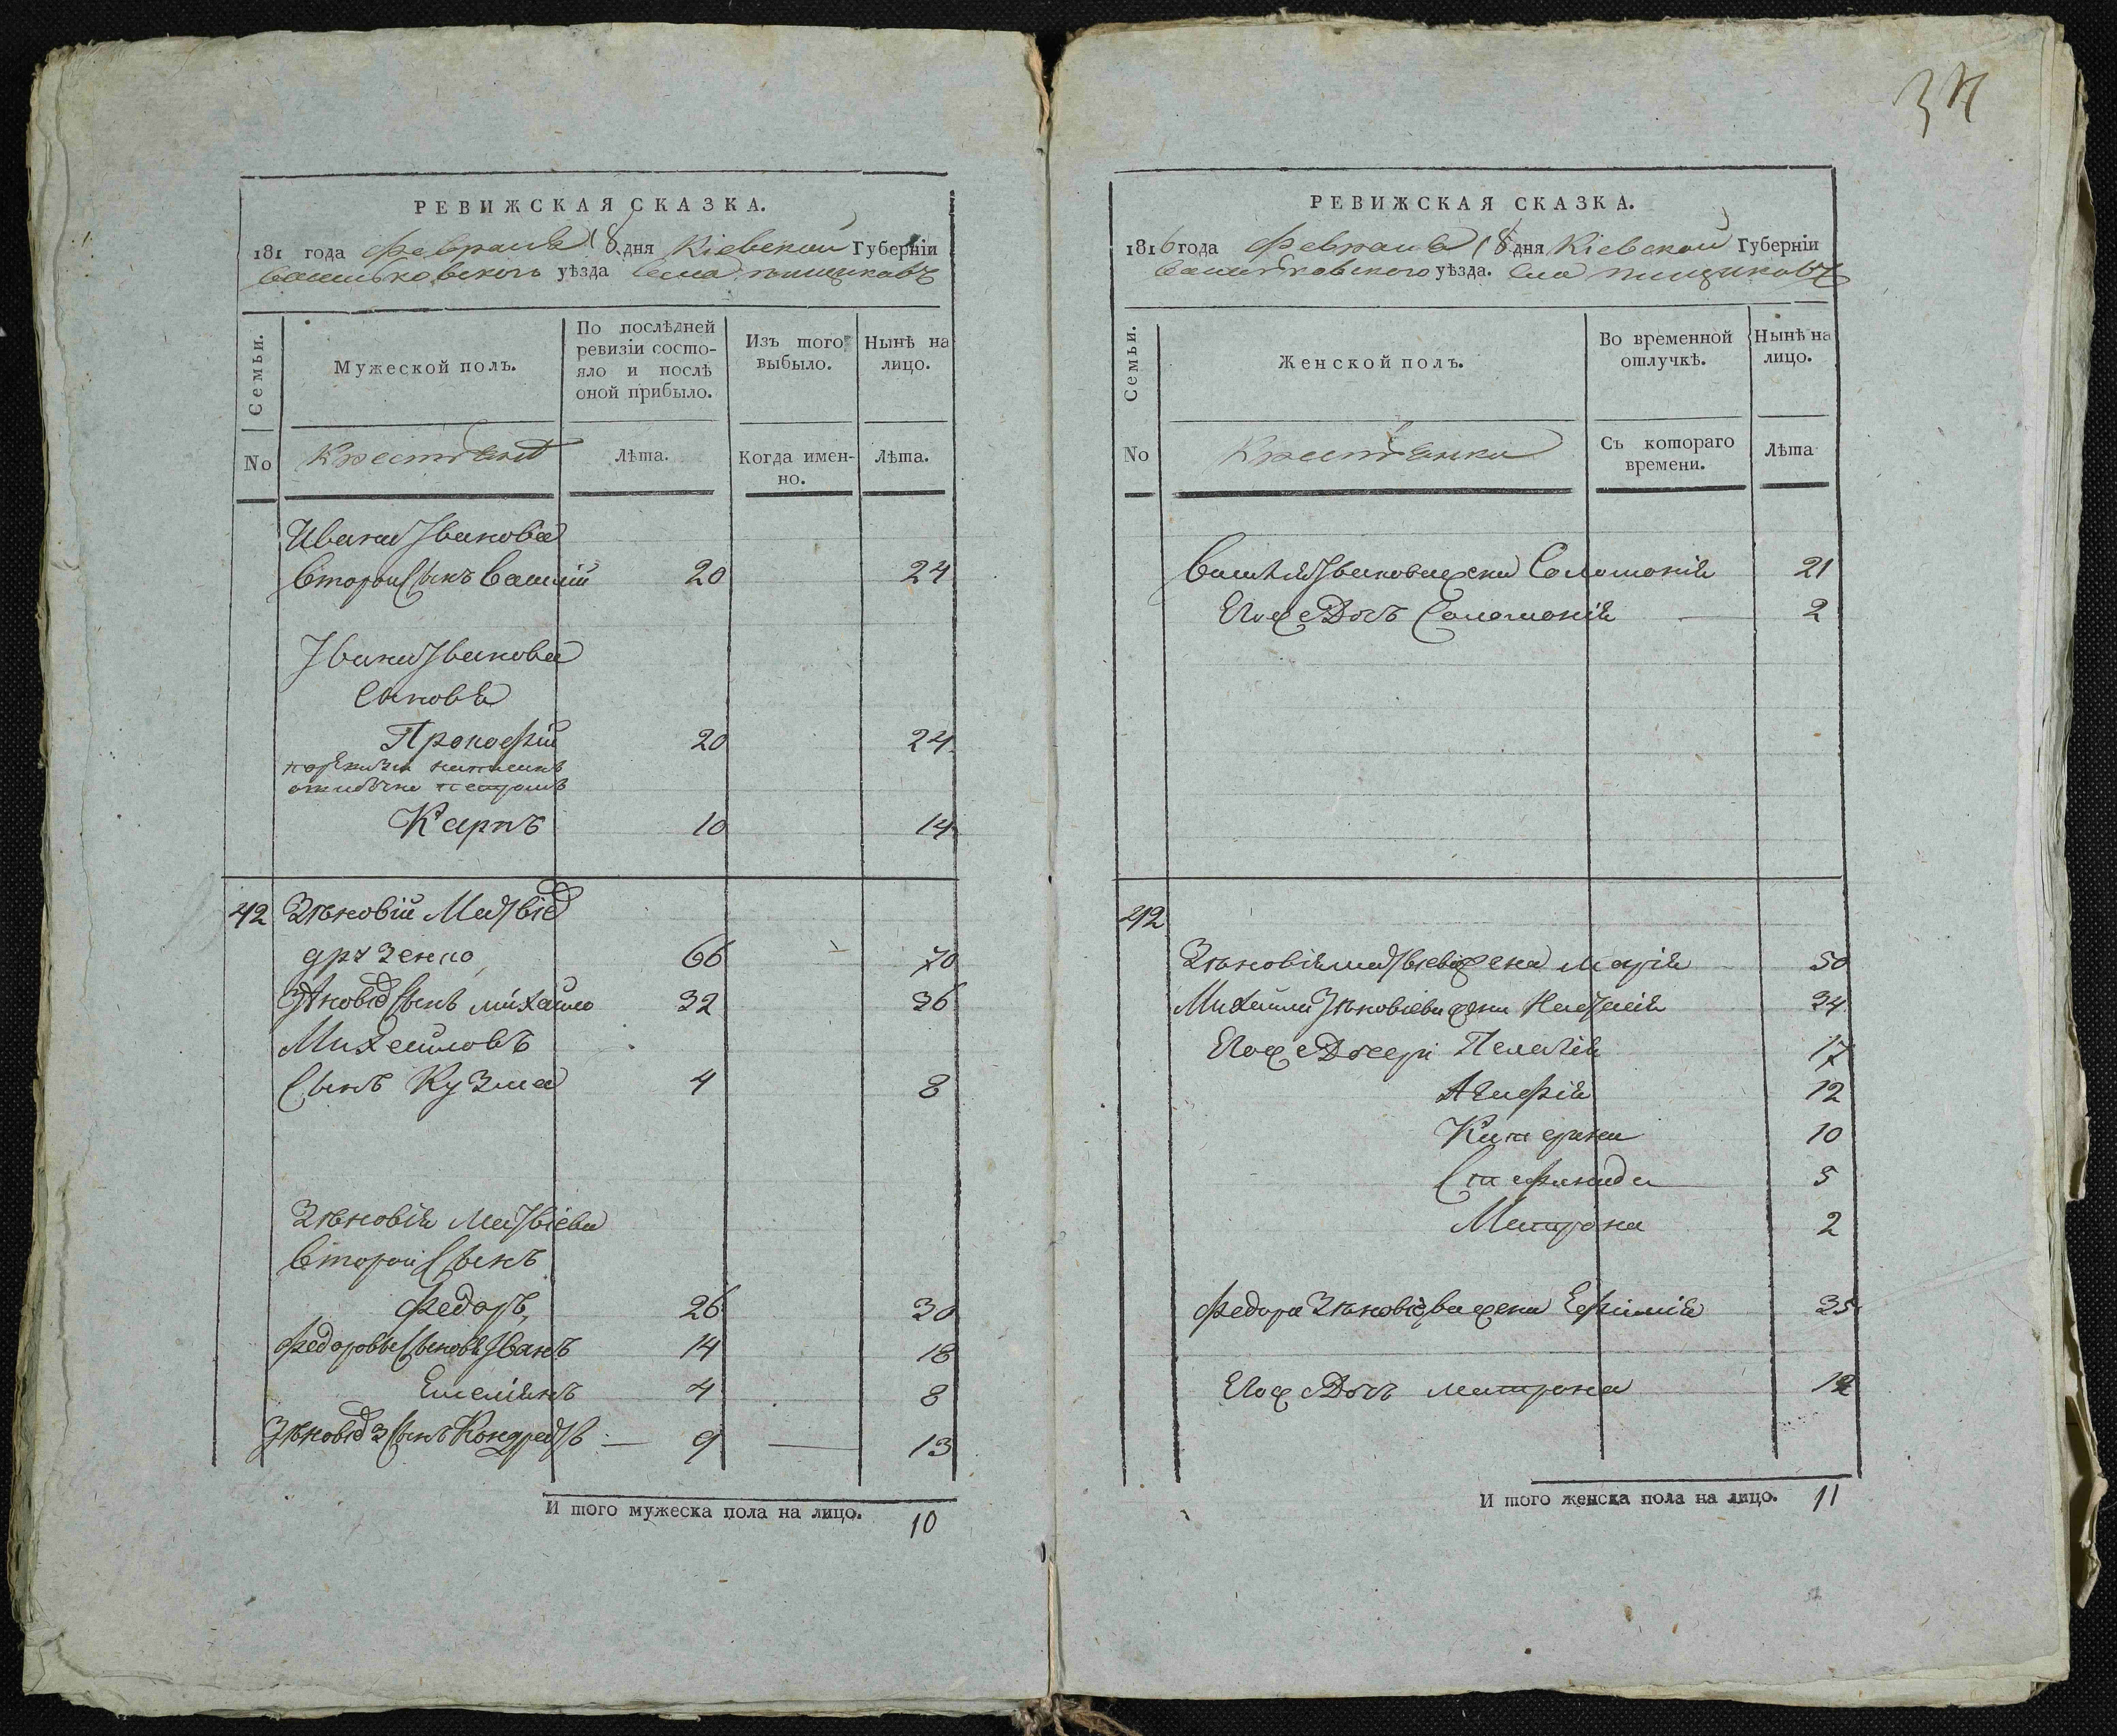 34
РЕВИЖСКАЯ СКАЗКА.
181 года февраля 18 дня Кіевской Губерніи
васильковского уѣзда села пищиковъ
Семьи.
Мужеской полъ.
По послѣдней ревизіи состо-
яло и послѣ оной прибыло.
Изъ того выбыло.
Нынѣ на лицо.
No
Крестьянѣ
Лѣта.
Когда имен-
но.
Лѣта.
Ивана Іванова
Второй Сынъ Василій 20 24
Івана Іванова
Сыновя
Прокофій 20 24
написанъ
Карпъ 10 14
42 Зѣновій Матвіев
66 70
Зѣновіев Сынъ михайло 32 36
Михайловъ
Сынъ Кузма 4 8
Зѣновія Матвіева
Второй Сынъ
Федоръ, 26 30
Федоровы Сыновя Іванъ 14 18
Емеліянъ 4 8
Зѣновіев 3 Сынъ Кондратъ 9 13
И того мужеска пола на лицо. 10
РЕВИЖСКАЯ СКАЗКА.
1816 года февраля 18 дня Кіевской Губерніи
васильковского уѣзда. села пищиковъ
Семьи.
Женской полъ.
Во временной отлучкѣ.
Нынѣ на лицо.
No
Крестьянки
Съ котораго времени.
Лѣта
Василія Іванова жена Соломонія 21
Его же Дочь Соломонія 2
42
Зѣновія матвіева жена Марія 50
Михайла Зѣновіева жена Настасія 34
Его же Дочери Пелагія 17
Агафія 12
Катерина 10
Стефанида 5
Матрона 2
Федора Зѣновіева жена Ефимія 35
Его же Дочь матрона 12
И того женска пола на лицо. 11